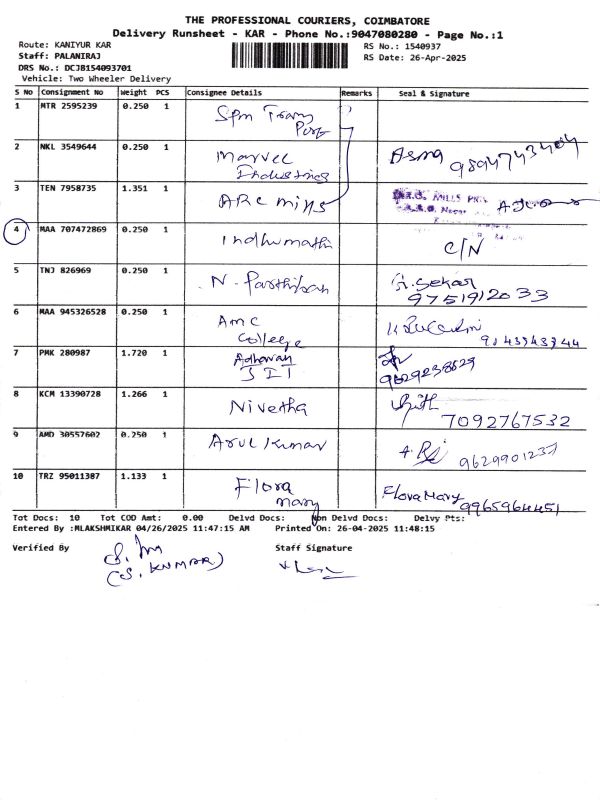 THE PROFESSIONAL COURIERS, COIMBATORE
Delivery Runsheet - KAR - Phone No.:9047080280 - Page No.:1
Route: KANIYUR KAR
RS No.: 1540937
Staff: PALANIRAJ
RS Date: 26-Apr-2025
DRS No.: DCJB154093701
Vehicle: Two Wheeler Delivery
S No Consignment No Weight PCS Consignee Details Remarks Seal & Signature
1 MTR 2595239 0.250 1 Spm Trans
Port
2 NKL 3549644 0.250 1 Marvel Asma
Industries
3 TEN 7958735 1.351 1 ARC mills MILLS
4 MAA 707472869 0.250 1 Indhumathi C/N
5 TNJ 826969 0.250 1 N. Parthiban Sekar
9751912033
6 MAA 945326528 0.250 1 AMC
College
7 PMK 280987 1.720 1 Adhavan
JIT
8 KCM 13390728 1.266 1 Nivetha
7092767532
9 AMD 30557602 0.250 1 Arul Kumar 9629901237
10 TRZ 95011387 1.133 1 Flora Flora Mary 9965964451
mary
Tot Docs: 10 Tot COD Amt: 0.00 Delvd Docs: Non Delvd Docs: Delvy Pts:
Entered By :MLAKSHMIKAR 04/26/2025 11:47:15 AM Printed On: 26-04-2025 11:48:15
Verified By Staff Signature
(S. KUMAR)